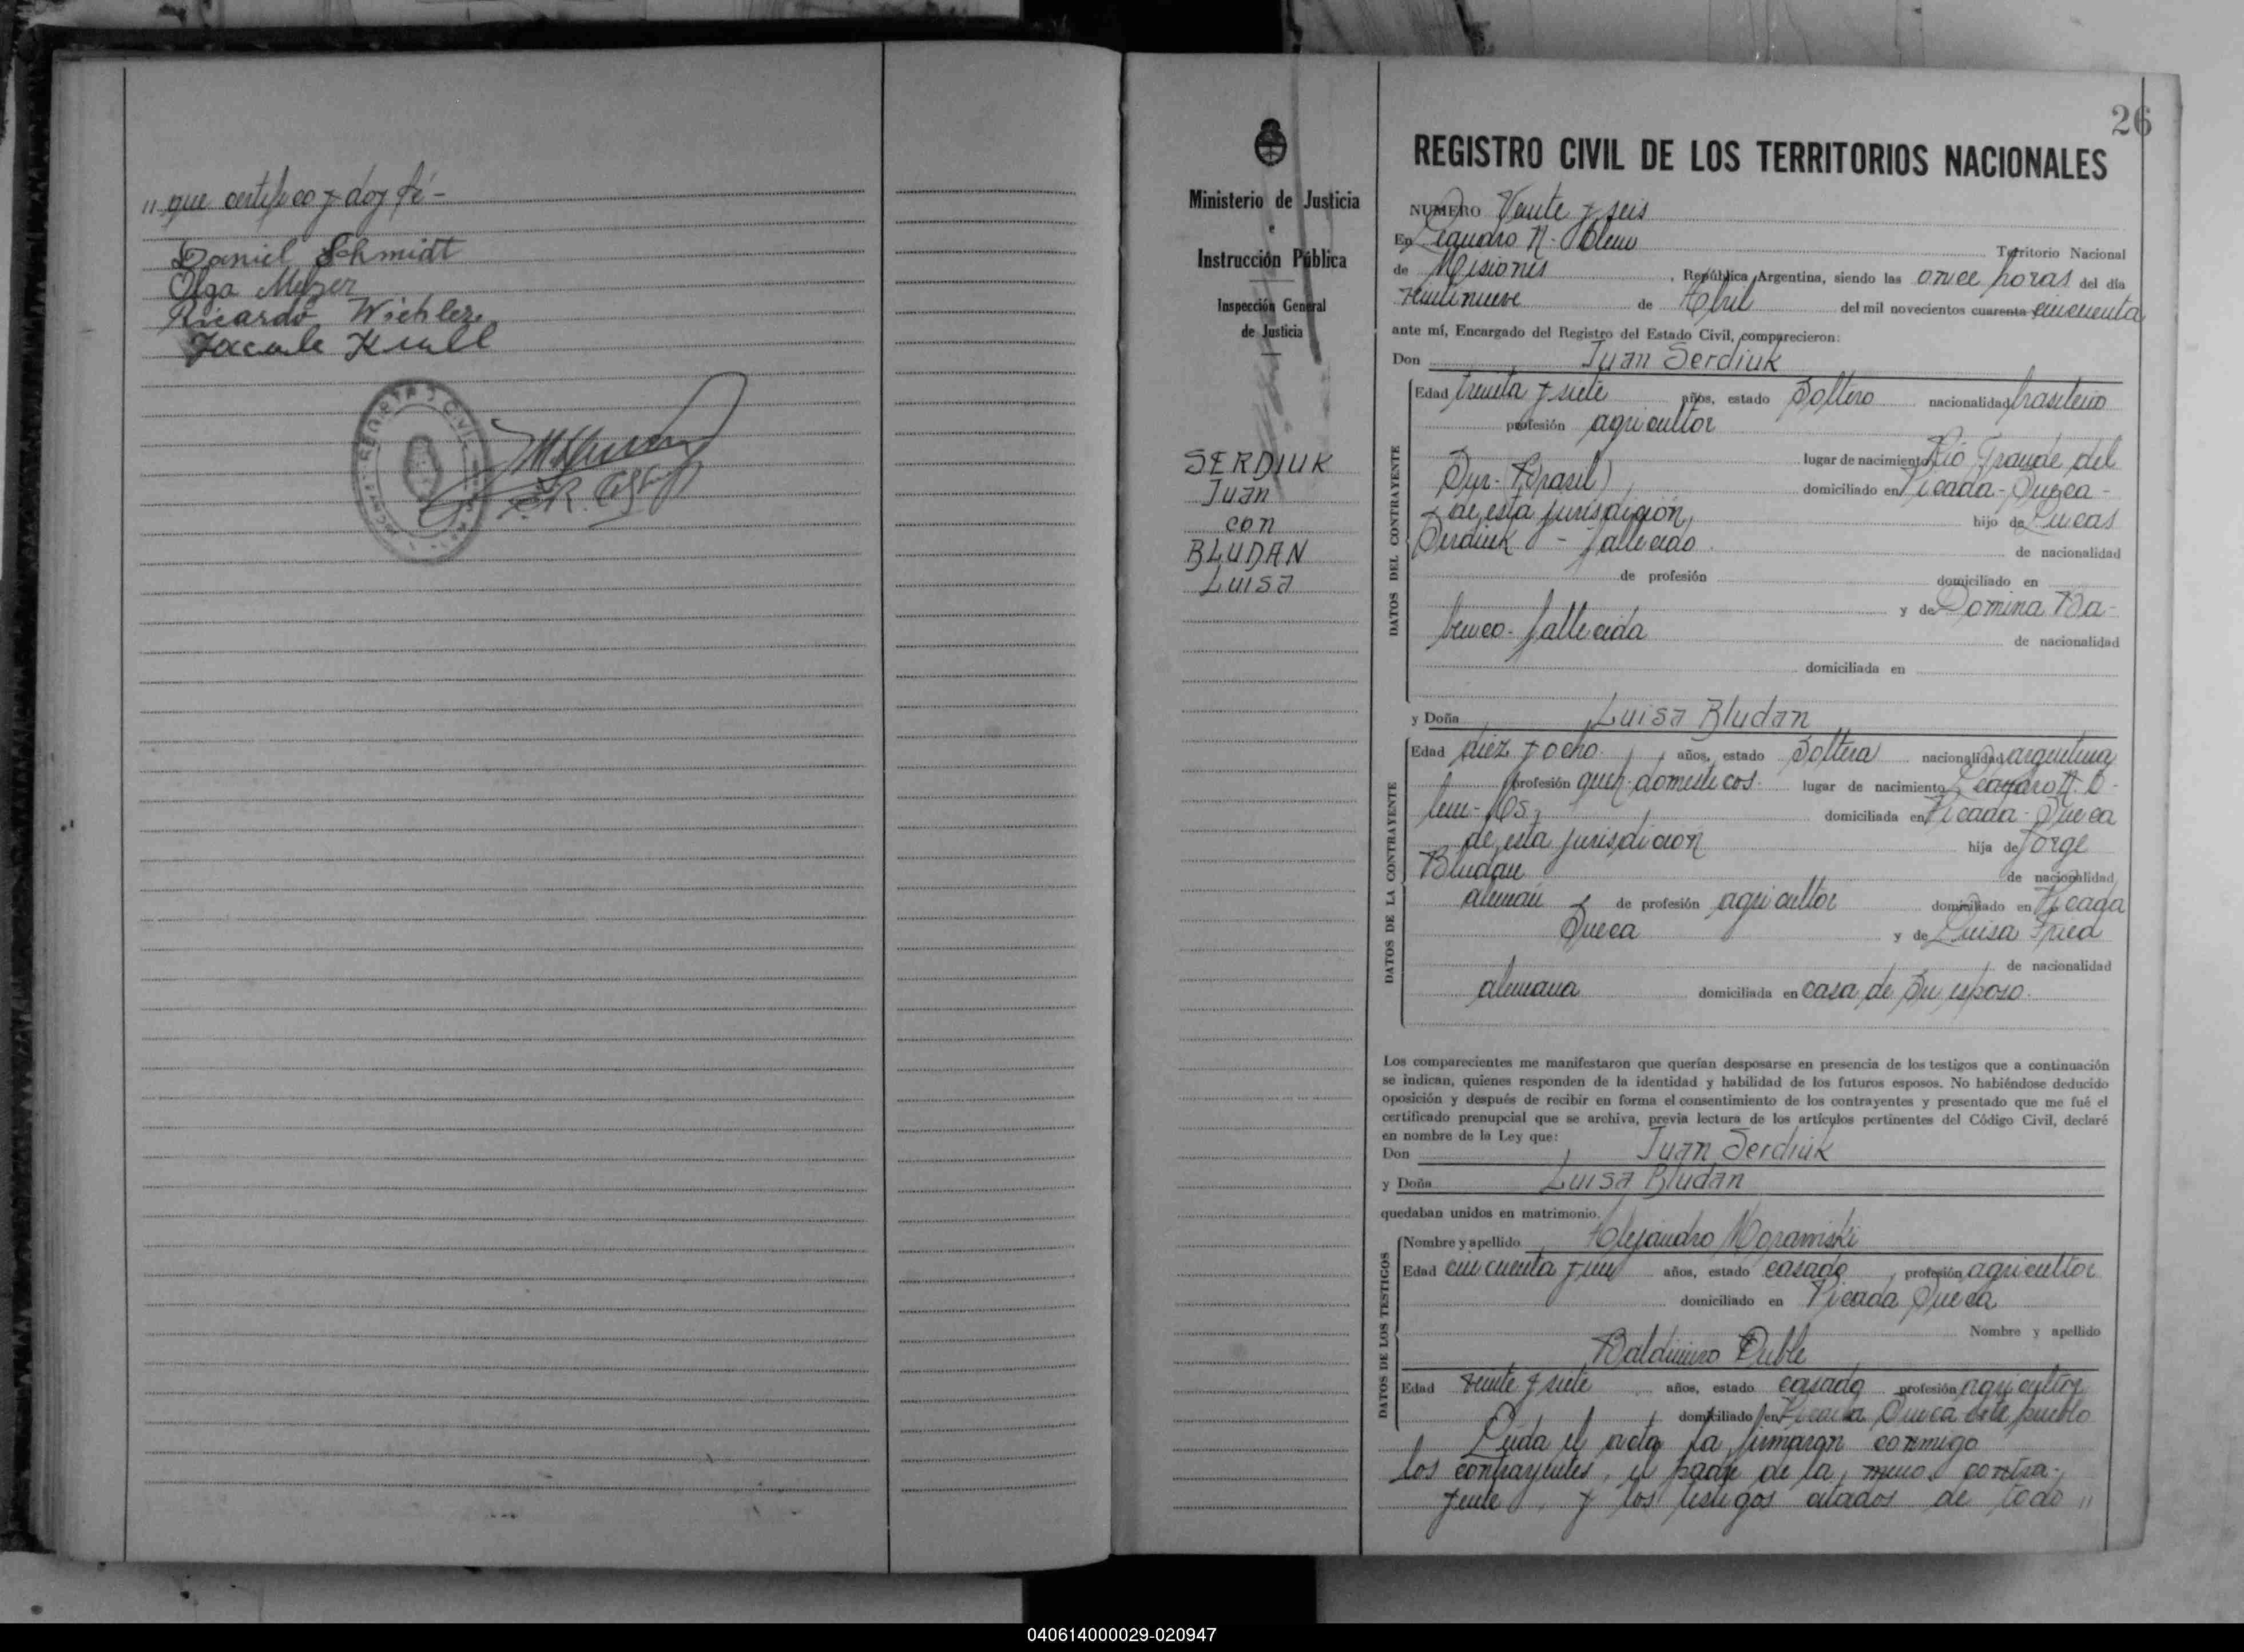 " que certifico y doy fé -
Daniel Schmidt
Olga Melzer
Ricardo Wichler
REGISTRO CIVIL
26
Ministerio de Justicia
e
Instrucción Pública
Inspección General
de Justicia
SERDIUK
Juan
con
BLUDAN
Luisa
REGISTRO CIVIL DE LOS TERRITORIOS NACIONALES
NUMERO Veinte y seis
En Leandro N. Alem Territorio Nacional
de Misiones, República Argentina, siendo las once horas del día
veintinueve de Abril del mil novecientos cuarenta cincuenta
ante mí, Encargado del Registro del Estado Civil, comparecieron:
Don Juan Serdiuk
DATOS DEL CONTRAYENTE
Edad treinta y siete años, estado Soltero nacionalidad brasileño
profesión agricultor
lugar de nacimiento Rio Grande del
Sur - Brasil) domiciliado en Picada - Sueca -
de esta jurisdición, hijo de Lucas
Serdiuk - fallecido. de nacionalidad
de profesión domiciliado en
y de Domina Ba-
benco - fallecida de nacionalidad
domiciliada en
y Doña Luisa Bludan
DATOS DE LA CONTRAYENTE
Edad diez y ocho. años, estado Soltera nacionalidad argentina
profesión queh. domesticos. lugar de nacimiento Leandro N. A-
lem - Ms. domiciliada en Picada - Sueca
de esta jurisdicion hija de Jorge
Bludan de nacionalidad
alemán de profesión agricultor domiciliado en Picada
Sueca y de Luisa Fried
de nacionalidad
alemana domiciliada en casa de su esposo.
Los comparecientes me manifestaron que querían desposarse en presencia de los testigos que a continuación
se indican, quienes responden de la identidad y habilidad de los futuros esposos. No habiéndose deducido
oposición y después de recibir en forma el consentimiento de los contrayentes y presentado que me fué el
certificado prenupcial que se archiva, previa lectura de los artículos pertinentes del Código Civil, declaré
en nombre de la Ley que:
Don Juan Serdiuk
y Doña Luisa Bludan
quedaban unidos en matrimonio.
DATOS DE LOS TESTIGOS
Nombre y apellido Alejandro
Edad cincuenta y un años, estado casado profesión agricultor
domiciliado en Picada Sueca
Nombre y apellido
Baldimiro Duble
Edad veinte y siete años, estado casado profesión agricultor
domiciliado en Picada Sueca este pueblo
Leida el acta la firmaron conmigo
los contrayentes, el padre de la menor contra-
yente, y los testigos citados de todo "
040614000029-020947